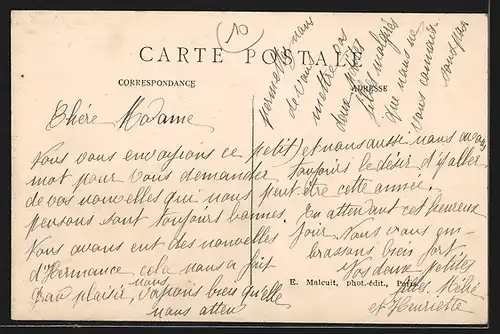 10
CARTE POSTALE
CORRESPONDANCE
ADRESSE
Chère Madame
Nous vous envoyions ce petit
mot pour vous demander
de vos nouvelles qui nous
pensons sont toujours bonnes.
Nous avons eut des nouvelles
d'Hermance cela nous a fait
Beau plaisir, nous voyions bien qu'elle
nous atten
et nous aussi nous avons
toujours le désir d'y aller
peut être cette année.
En attendant cet heureux
jour Nous vous em-
brassons bien fort
Vos deux petites
filles
et Henriette
permettez nous
de vous
mettre vos
deux petites
filles malgrés
que nous ne
vous connaiss
sons pas
E. Malcuit, phot.-édit., Paris